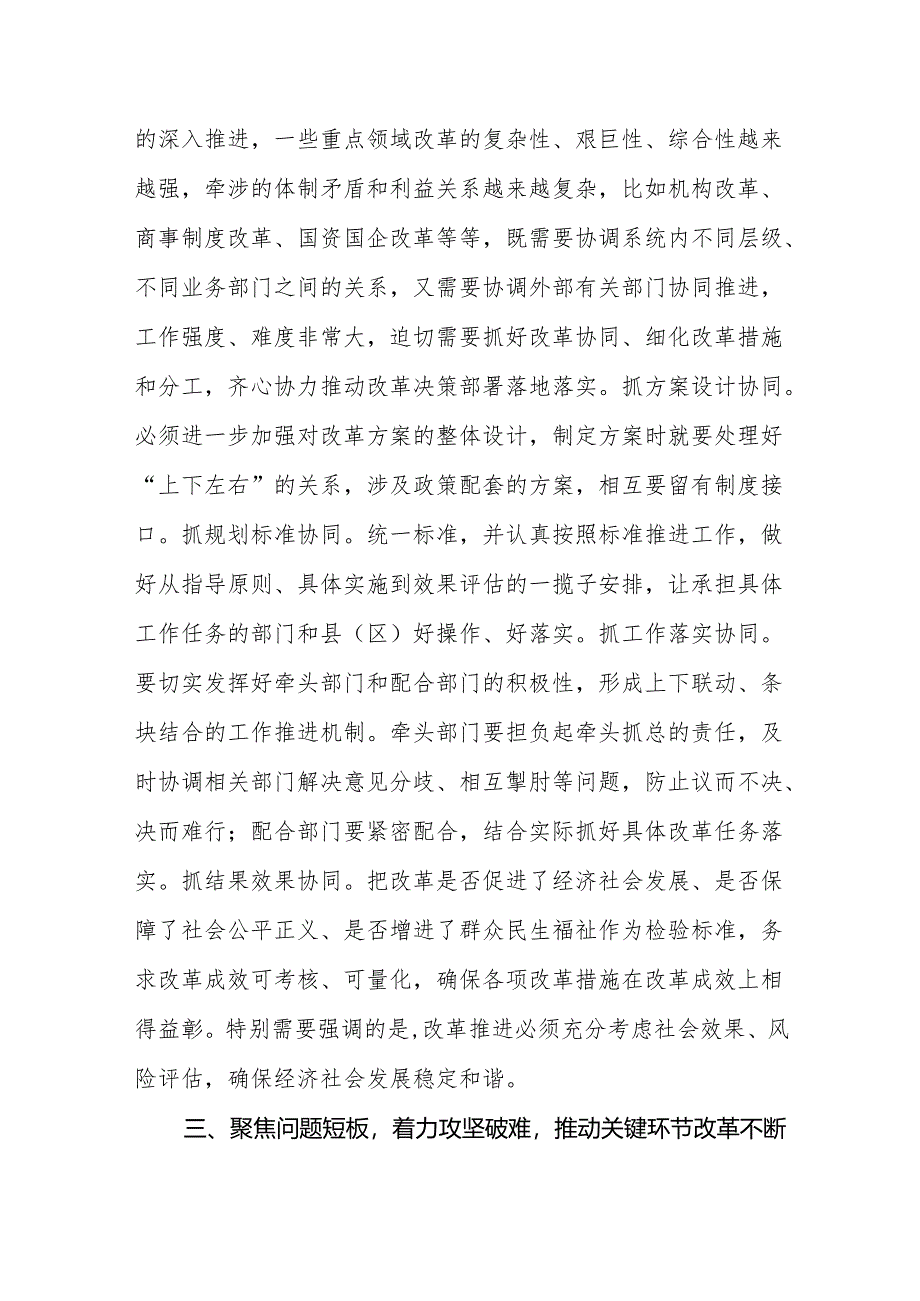 的深入推进，一些重点领域改革的复杂性、艰巨性、综合性越来
越强，牵涉的体制矛盾和利益关系越来越复杂，比如机构改革、
商事制度改革、国资国企改革等等，既需要协调系统内不同层级、
不同业务部门之间的关系，又需要协调外部有关部门协同推进，
工作强度、难度非常大，迫切需要抓好改革协同、细化改革措施
和分工，齐心协力推动改革决策部署落地落实。抓方案设计协同。
必须进一步加强对改革方案的整体设计，制定方案时就要处理好
“上下左右”的关系，涉及政策配套的方案，相互要留有制度接
口。抓规划标准协同。统一标准，并认真按照标准推进工作，做
好从指导原则、具体实施到效果评估的一揽子安排，让承担具体
工作任务的部门和县（区）好操作、好落实。抓工作落实协同。
要切实发挥好牵头部门和配合部门的积极性，形成上下联动、条
块结合的工作推进机制。牵头部门要担负起牵头抓总的责任，及
时协调相关部门解决意见分歧、相互掣肘等问题，防止议而不决、
决而难行；配合部门要紧密配合，结合实际抓好具体改革任务落
实。抓结果效果协同。把改革是否促进了经济社会发展、是否保
障了社会公平正义、是否增进了群众民生福祉作为检验标准，务
求改革成效可考核、可量化，确保各项改革措施在改革成效上相
得益彰。特别需要强调的是,改革推进必须充分考虑社会效果、风
险评估，确保经济社会发展稳定和谐。
三、聚焦问题短板，着力攻坚破难，推动关键环节改革不断